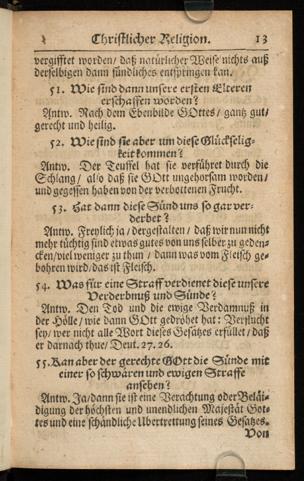 Christlicher Religion. 13
vergifftet worden/ daß natürlicher Weise nichts auß
derselbigen dann sündliches entspringen kan.
51. Wie sind dann unsere ersten Elteren
erschaffen worden?
Antw. Nach dem Ebenbilde GOttes/ gantz gut/
gerecht und heilig.
52. Wie sind sie aber um diese Glückselig-
keit kommen?
Antw. Der Teuffel hat sie verführet durch die
Schlang/ also daß sie GOtt ungehorsam worden/
und gegessen haben von der verbottenen Frucht.
53. Hat dann diese Sünd uns so gar ver-
derbet?
Antw. Freylich ja/ dergestalten/ daß wir nun nicht
mehr tüchtig sind etwas gutes von uns selber zu geden-
cken/viel weniger zu thun/ dann was vom Fleisch ge-
bohren wird/das ist Fleisch.
54. Was für eine Straff verdienet diese unsere
Verderbnuß und Sünde?
Antw. Den Tod und die ewige Verdamnuß in
der Hölle/ wie dann GOtt gedröhet hat: Verflucht
sey/ wer nicht alle Wort dieses Gesatzes erfüllet/ daß
er darnach thue/ Deut. 27. 26.
55. Kan aber der gerechte GOtt die Sünde mit
einer so schwären und ewigen Straffe
ansehen?
Antw. Ja/dann sie ist eine Verachtung oder Beläi-
digung der höchsten und unendlichen Majestät Got-
tes und eine schändliche Ubertrettung seines Gesatzes.
Von